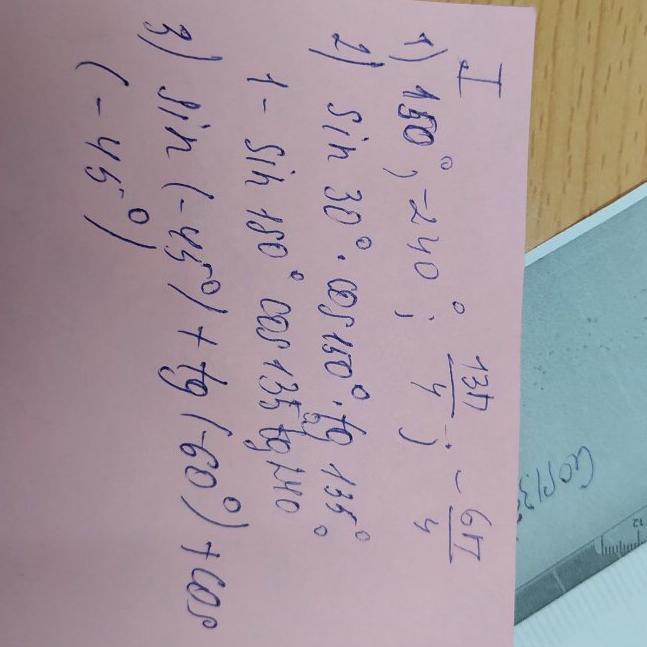 I
1) 150°; -240°; 13π/4; -6π/4
2) sin 30° · cos 150° · tg 135°
1 - sin 180° cos 135 tg 240°
3) sin (-45°) + tg (-60°) + cos
(-45°)
12